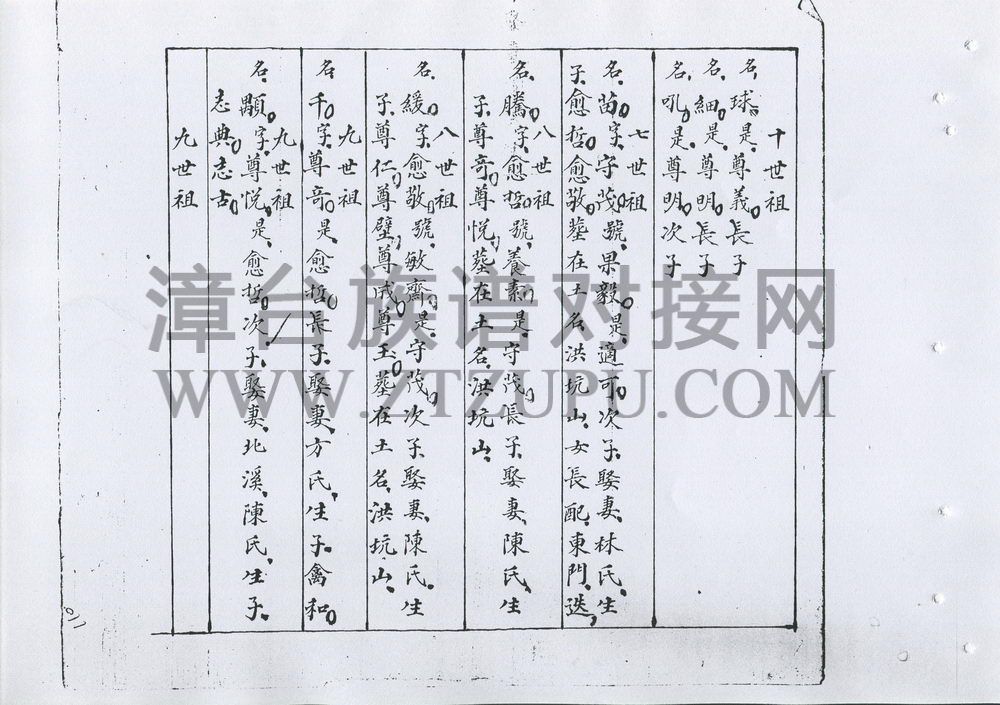 十世祖
名球是尊義長子
名細是尊明長子
名吼是尊明次子
七世祖
名苗字守茂號果毅是適可次子娶妻林氏生
子愈哲愈敬墓在土名洪坑山女長配東門迭
八世祖
名騰字愈哲號養素是守茂長子娶妻陳氏生
子尊奇尊悅墓在土名洪坑山
八世祖
名緩字愈敬號敏齋是守茂次子娶妻陳氏生
子尊仁尊壁尊成尊玉墓在土名洪坑山
九世祖
名千字尊奇是愈哲長子娶妻方氏生子禽和
九世祖
名顯字尊悅是愈哲次子娶妻北溪陳氏生子
志典志古
九世祖
漳台族谱对接网
WWW.ZTZUPU.COM